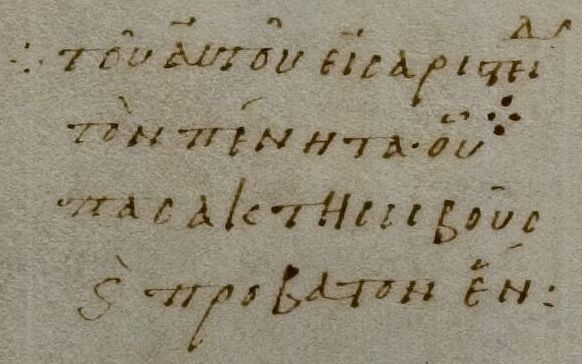 :· τοῦ αὐτοῦ εἰς ἀριστεί δ
τὸν πένητα· οὗ
πᾶσα κτῆσις βοῦς
ϛ̀ πρόβατον ἕν: